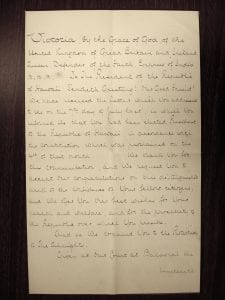 Victoria by the Grace of God of the
United Kingdom of Great Britain and Ireland
Queen, Defender of the Faith, Empress of India
&c., &c., &c. To The President of the Republic
of Hawaii Sendeth Greeting! Our Good Friend!
We have received the letter which You addressed
to Us on the 7th day of July last in which You
informed Us that You had been elected President
of the Republic of Hawaii in accordance with
the Constitution which was proclaimed on the
4th of that month. We thank You for
this communication, and We request You to
accept Our congratulations on this distinguished
mark of the confidence of Your fellow citizens,
and We offer You Our best wishes for Your
health and welfare, and for the prosperity of
the Republic over which You preside.
And so We commend You to the Protection
of The Almighty.
Given at Our Court at Balmoral the